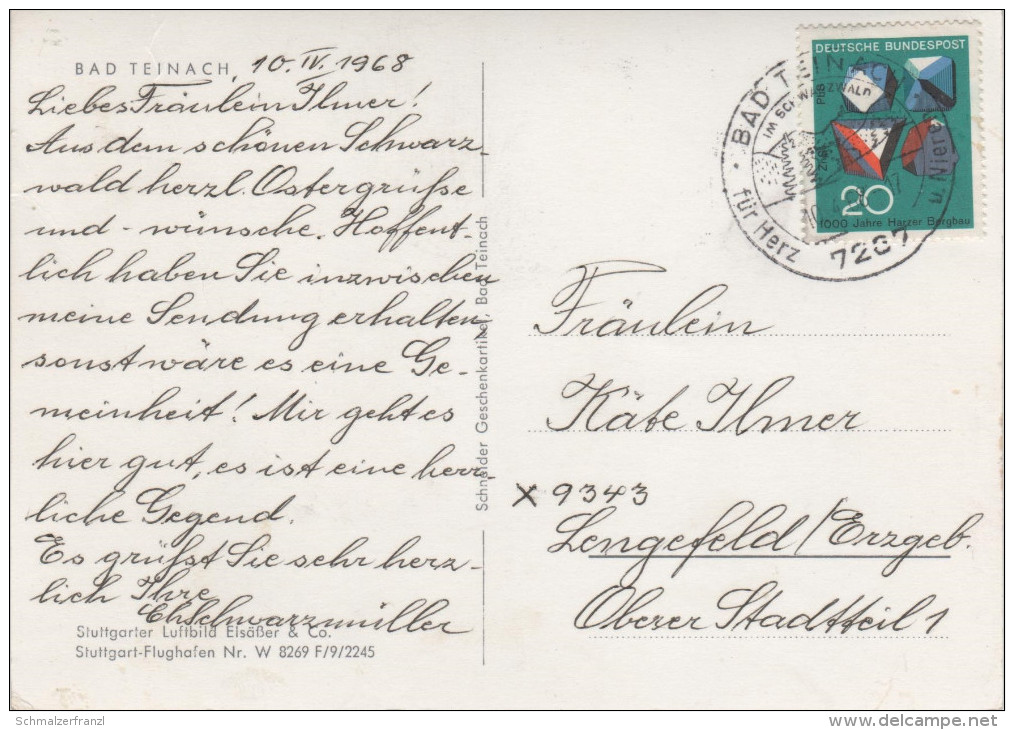 BAD TEINACH, 10. IV. 1968
Liebes Fräulein Ilmer!
Aus dem schönen Schwarz-
wald herzl. Ostergrüße
und -wünsche. Hoffent-
lich haben Sie inzwischen
meine Sendung erhalten,
sonst wäre es eine Ge-
meinheit! Mir geht es
hier gut, es ist eine herr-
liche Gegend.
Es grüßt Sie sehr herz-
lich Ihre
EhSchwarzmüller
Stuttgarter Luftbild Elsäßer & Co.
Stuttgart-Flughafen Nr. W 8269 F/9/2245
Schneider Geschenkartikel, Bad Teinach
DEUTSCHE BUNDESPOST
PbS
ZnS
20
1000 Jahre Harzer Bergbau
BAD TEINACH
IM SCHWARZWALD
für Herz u. Niere
7267
Fräulein
Käte Ilmer
x 9343
Lengefeld/Erzgeb.
Oberer Stadtteil 1
Schmalzerfranzl
www.delcampe.net